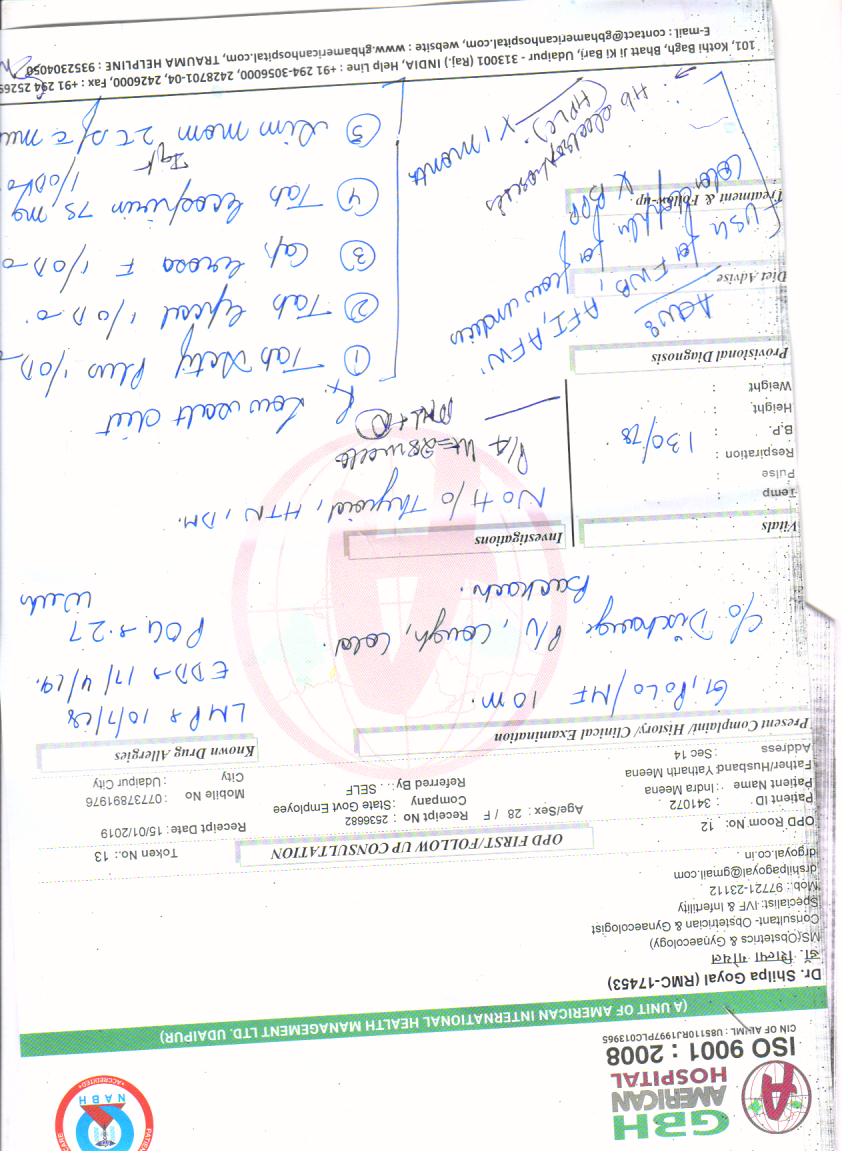 GBH
AMERICAN
HOSPITAL
ISO 9001 : 2008
CIN OF AIHML : U85110RJ1997PLC013965
NABH
ACCREDITED
(A UNIT OF AMERICAN INTERNATIONAL HEALTH MANAGEMENT LTD. UDAIPUR)
Dr. Shilpa Goyal (RMC-17453)
डॉ. शिल्पा गोयल
MS(Obstetrics & Gynaecology)
Consultant- Obstetrician & Gynaecologist
Specialist: IVF & Infertility
Mob.: 97721-23112
drshilpagoyal@gmail.com
drgoyal.co.in
OPD FIRST/FOLLOW UP CONSULTATION
OPD Room No: 12
Token No.: 13
Patient ID : 341072
Age/Sex : 28 / F
Receipt No : 2536682
Receipt Date : 15/01/2019
Patient Name : Indra Meena
Company : State Govt Employee
Mobile No : 07737891976
Father/Husband Yatharth Meena
Referred By : SELF
City : Udaipur City
Address : Sec 14
Present Complaint/ History/ Clinical Examination
Known Drug Allergies
G1, P0L0/MF 10 m.
LMP 10/7/18
EDD 17/4/19.
POG 27
Week
C/o Discharge P/V, Cough, Cold.
Backach.
Vitals
Investigations
No H/o Thyroid, HTN, DM.
Temp :
Pulse :
Respiration :
B.P. : 130/78
Height :
Weight :
P/A Ut = 28 weeks
Provisional Diagnosis
Rx Low salt diet
① Tab Plus 1/OD
② Tab 1/OD
③ Cap F 1/OD
④ Tab Ecosprin 75 mg 1/OD
⑤ mom 2T
Adv
Diet Advise
USG for FWB, AFI, AFW
Color doppler for flow
Treatment & Follow-up
X BOR
Hb electrophoresis
(HPLC). X 1 month
101, Kothi Bagh, Bhatt Ji Ki Bari, Udaipur - 313001 (Raj.) INDIA, Help Line : +91 294-3056000, 2428701-04, 2426000, Fax : +91 294
E-mail : contact@gbhamericanhospital.com, website : www.gbhamericanhospital.com, TRAUMA HELPLINE : 9352304050